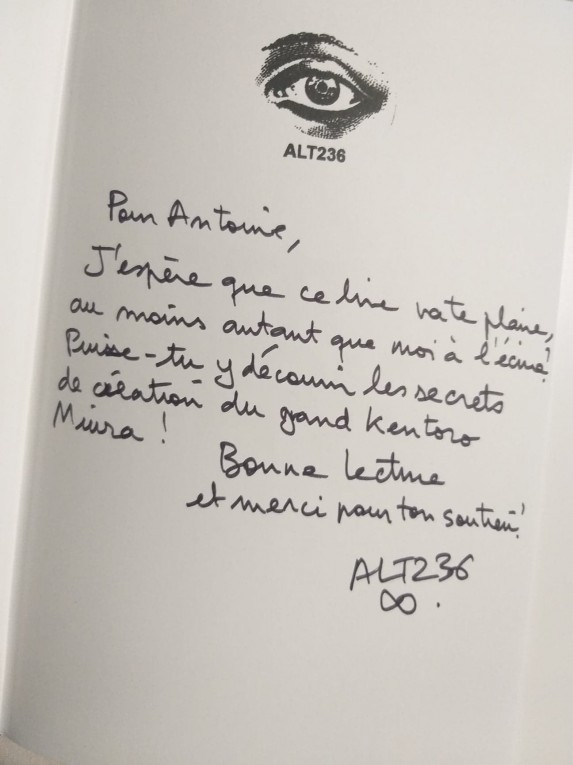 ALT236
Pour Antoine,
J'espère que ce livre va te plaire,
au moins autant que moi à l'écrire!
Puisse-tu y découvrir les secrets
de création du grand Kentoro
Miura !
Bonne lecture
et merci pour ton soutien!
ALT236
∞.